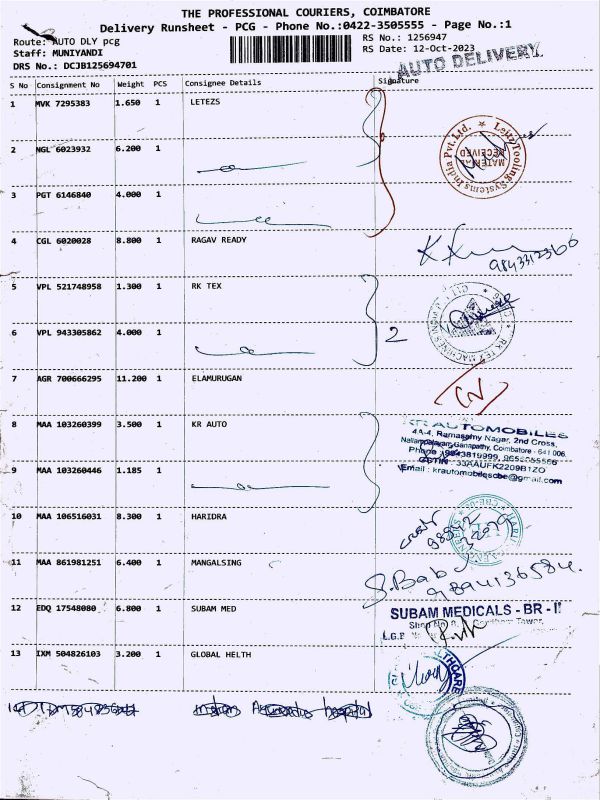 THE PROFESSIONAL COURIERS, COIMBATORE
Delivery Runsheet - PCG - Phone No.:0422-3505555 - Page No.:1
Route: AUTO DLY pcg
RS No.: 1256947
Staff: MUNIYANDI
RS Date: 12-Oct-2023
DRS No.: DCJB125694701
AUTO DELIVERY
S No Consignment No Weight PCS Consignee Details Signature
1 MVK 7295383 1.650 1 LETEZS
Leitz Tooling Systems India Pvt. Ltd.
MATERIAL RECEIVED
2 NGL 6023932 6.200 1
3 PGT 6146840 4.000 1
4 CGL 6020028 8.800 1 RAGAV READY
9843312366
5 VPL 521748958 1.300 1 RK TEX
RK TEX MACHINES INDIA PVT LTD
6 VPL 943305862 4.000 1
2
7 AGR 700666295 11.200 1 ELAMURUGAN
8 MAA 103260399 3.500 1 KR AUTO
KR AUTOMOBILES
4A-4, Ramasamy Nagar, 2nd Cross,
Ganapathy, Coimbatore - 641 006.
9 MAA 103260446 1.185 1
GSTIN : 33AAUFK2209B1ZO
Email : krautomobilescbe@gmail.com
10 MAA 106516031 8.300 1 HARIDRA
11 MAA 861981251 6.400 1 MANGALSING
S. Babu
9894136584.
12 EDQ 17548080 6.800 1 SUBAM MED
SUBAM MEDICALS - BR - II
Tower,
13 IXM 504826103 3.200 1 GLOBAL HELTH